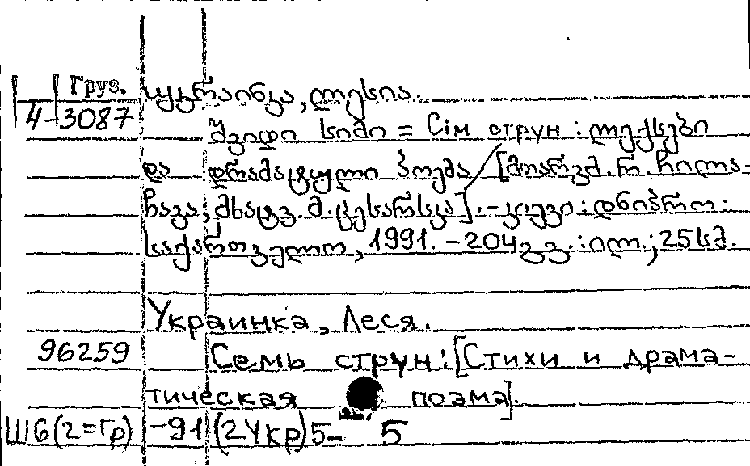 Груз. უკრაინკა, ლესია.
4-3087
შვიდი სიმი = Сім струн : ლექსები
და დრამატული პოემა / [მთარგმ. რ. ჩილა-
ჩავა; მხატვ. მ. ცესარსკა]. - კიევი : დნიპრო :
საქართველო, 1991. - 204 გვ. : ილ.; 25 სმ.
Украинка, Леся.
96259 Семь струн : [Стихи и драма-
тическая поэма].
Ш6(2=Гр) -91 (2Укр)5- 5